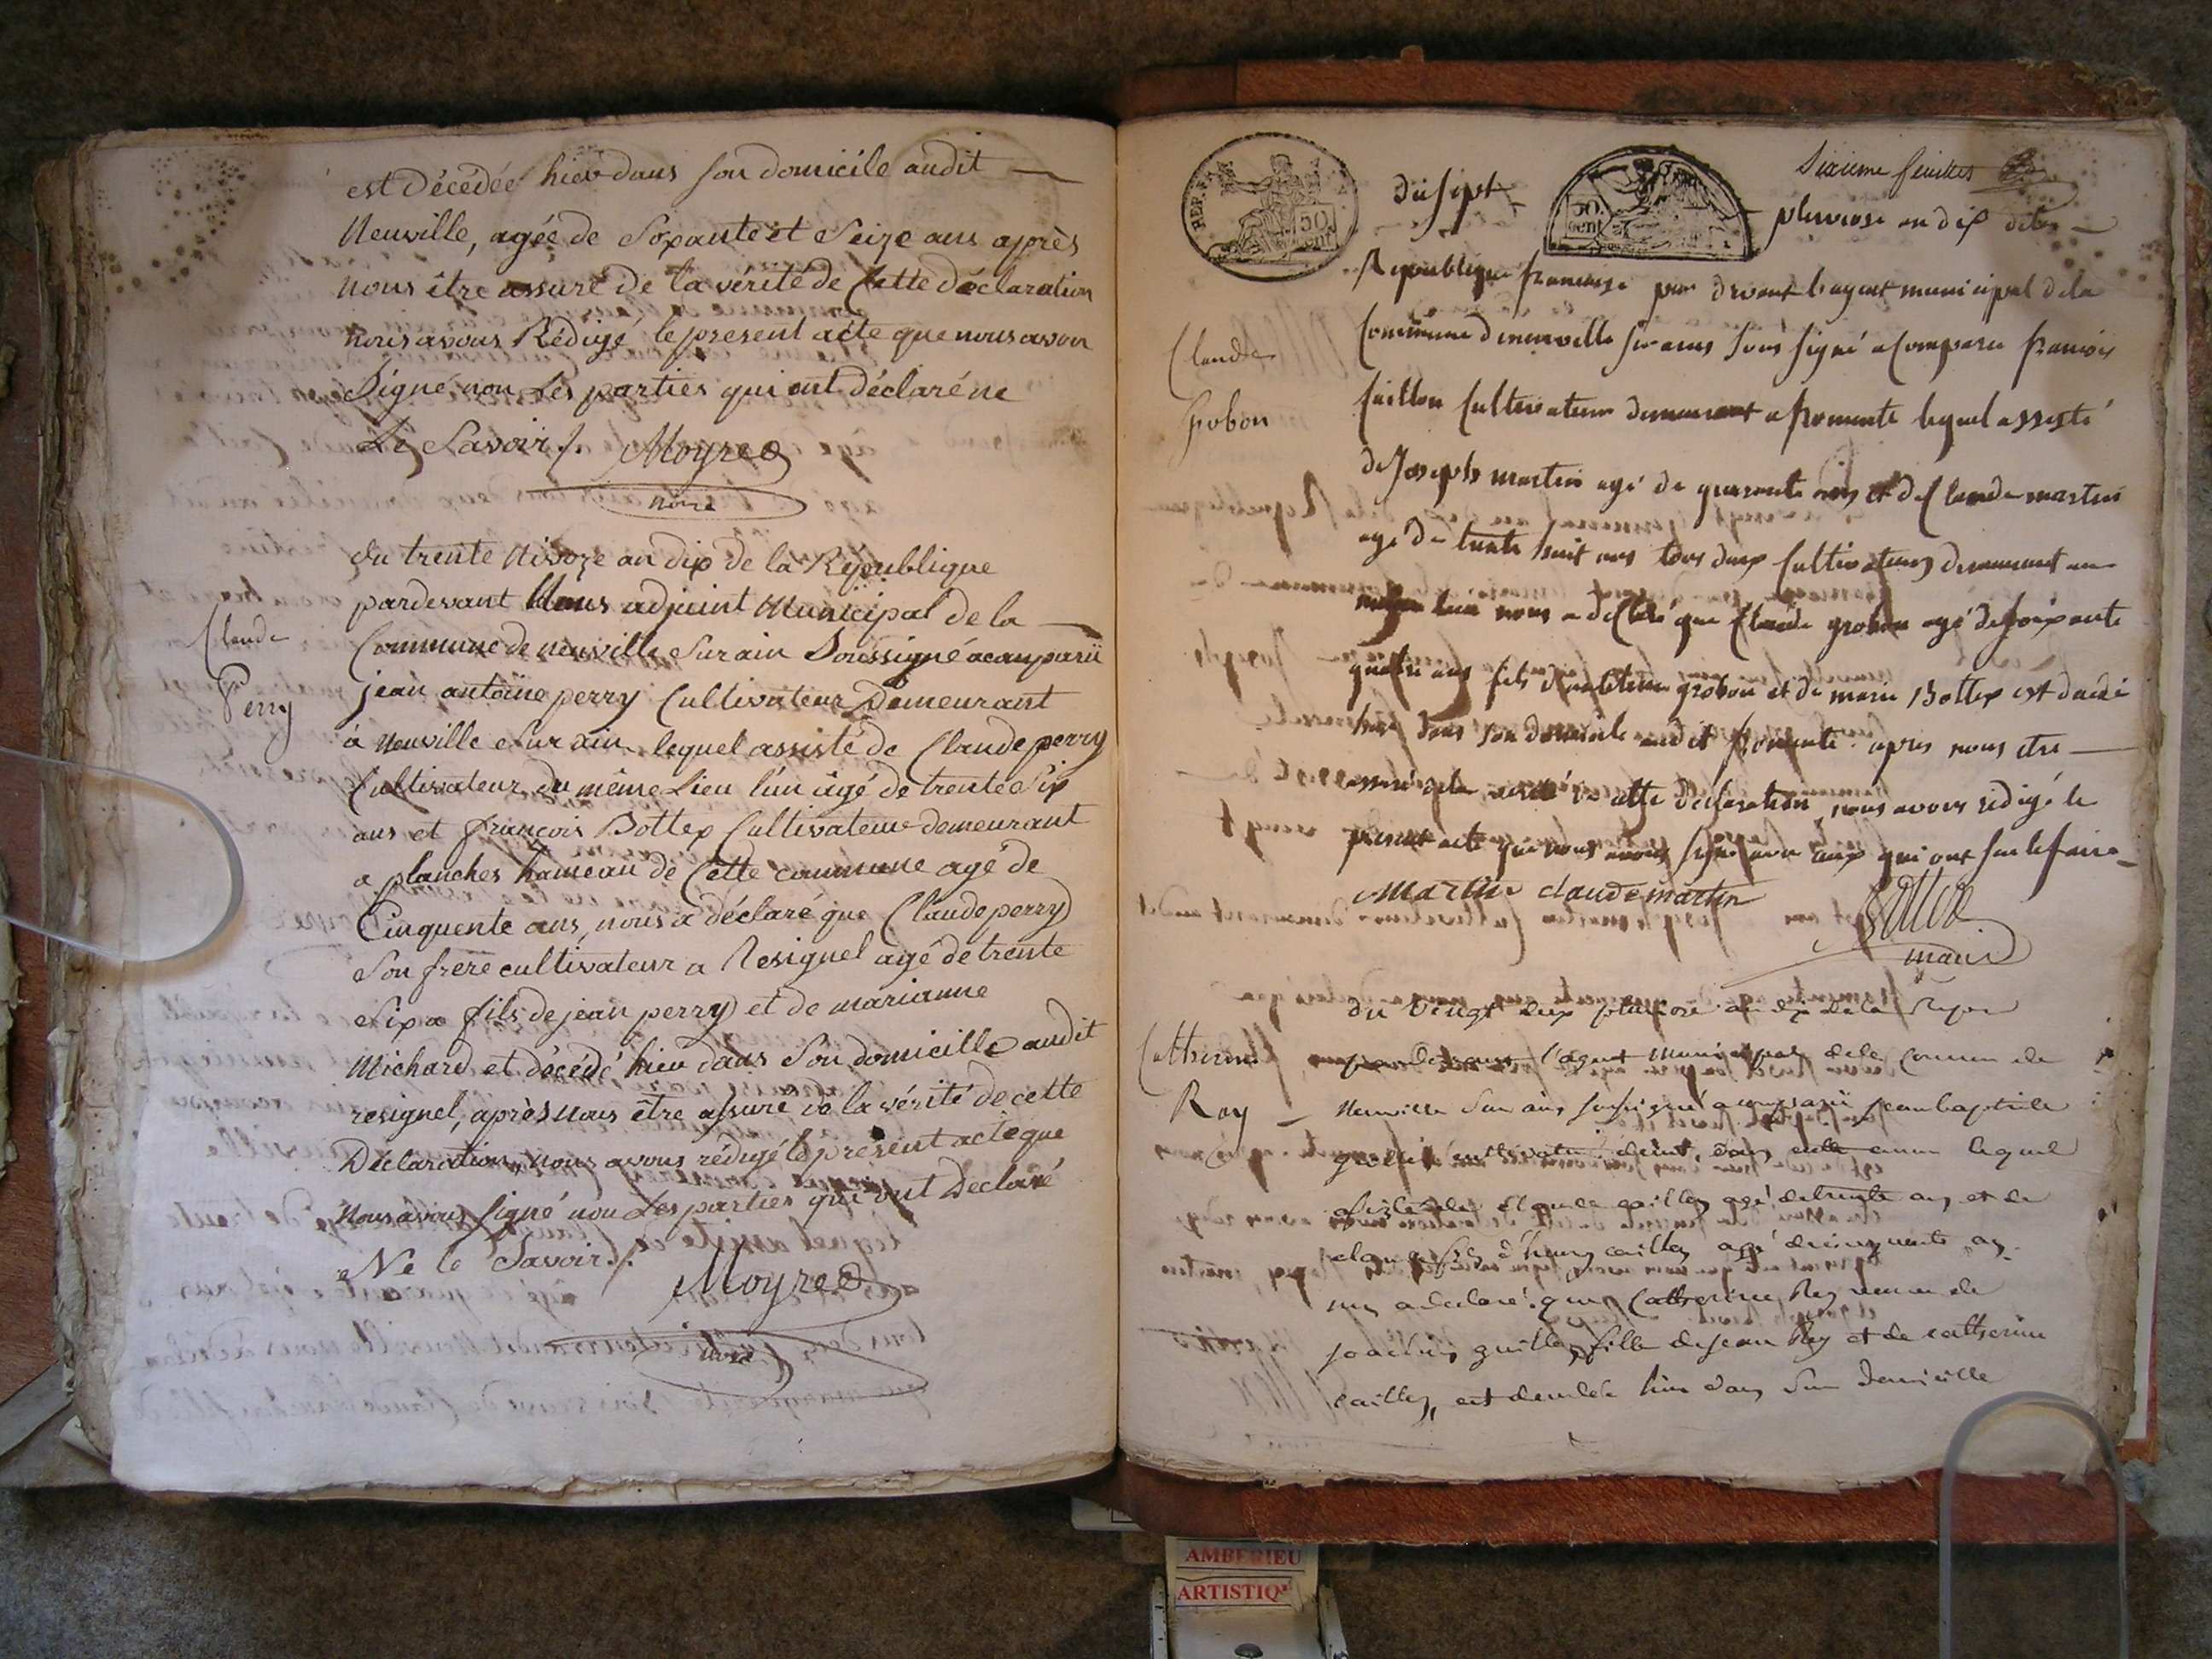 est Décédée hier dans son domicile audit
Neuville, agée de Soxante et Seize ans après
nous être assuré de la vérité de Cette déclaration
nous avons Rédigé le present acte que nous avon
Signé, non Les parties qui ont déclaré ne
Le Savoir /. Moyret
maire
du trente Nivoze an dix de la République
pardevant Nous adjoint Municipal de la
Claude
Perry
Commune de neuville Sur ain Soussigné a comparü
jean antoine perry Cultivateur Demeurant
à Neuville Sur ain lequel assisté de Claude perry
Cultivateur du même Lieu l'un âgé de trente Six
ans et françois Bottex Cultivateur demeurant
a planches hameau de Cette commune agé de
Cinquente ans, nous a déclaré que Claude perry
Son frere cultivateur a Resignel agé de trente
Six a fils de jean perry et de marianne
Michard et décédé hier dans Son domicille audit
resignel, après nous être assuré de la vérité de cette
Déclaration, nous avons rédigé le présent acte que
Nous avons Signé non Les parties qui ont Déclaré
Ne le Savoir /.
Moyret
maire
REP. FRA.
50
cent
50
cent
Sixieme feuillet
Du sept
pluviose an dix de la
Republique francaise par devant l'agent municipal de la
Claude
Grobon
Commune de neuville sur ains sous signé a Comparu francois
Caillon Cultivateur demeurant a fromente lequel assisté
de Joseph martin agé de quarante ans et de Claude martin
agé de trente huit ans tous deux Cultivateurs demeurant au
meme lieu nous a declaré que Claude grobon agé de soixante
quatre ans fils d'anthelme grobon et de marie Bottex est décédé
hier dans son domicile audit fromente apres nous etre
assuré de la verité de cette déclaration, nous avons rédigé le
present acte que nous avons signé avec ceux qui ont su le faire
Martin claude martin
maire
Du vingt deux pluviose an dix de la Repu
Catherine
Rey
pardevant l'agent municipal de la Commun de
Neuville Sur ain sousigné a comparü jean baptiste
cultivateur lequel
de Claude caillon agé de trente ans et de
caillon agé de cinquante ans
nous a declaré que Catherine Rey veuve de
joachim guillon fille de jean Rey et de catherine
caillon, est decedée hier dans Son domicille
AMBERIEU
ARTISTIQU